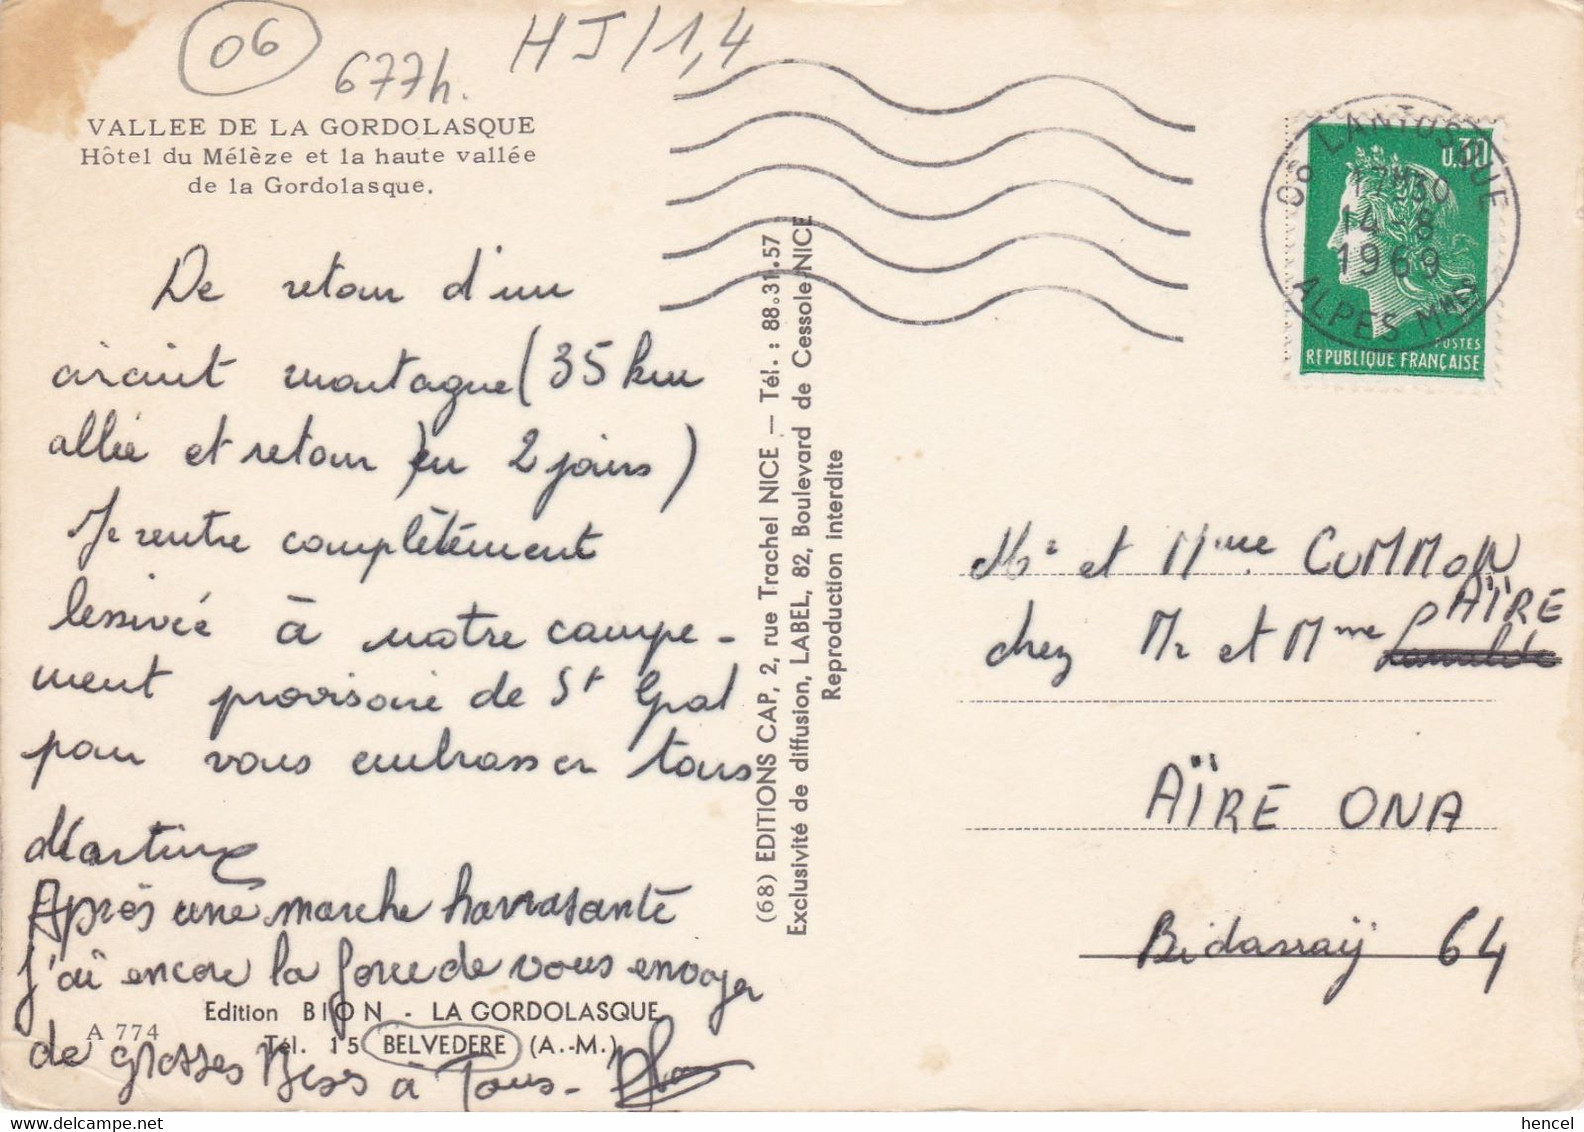 06
677h.
HJ/1,4
VALLEE DE LA GORDOLASQUE
Hôtel du Mélèze et la haute vallée
de la Gordolasque.
De retour d'un
circuit montagne (35 km
allée et retour) en 2 jours)
Je rentre complètèment
lessivée à notre campe-
ment provisoire de St Gral
pour vous embrasser tous
Martine
Après une marche harrasante
j'ai encore la force de vous envoyer
de grosses Bises à Tous -
Edition BION - LA GORDOLASQUE
A 774
Tél. 15 BELVEDERE (A.-M.)
(68) EDITIONS CAP, 2, rue Trachel NICE — Tél. : 88.31.57
Exclusivité de diffusion, LABEL, 82, Boulevard de Cessole-NICE
Reproduction interdite
06 LANTOSQUE
17H30
14-8
1969
ALPES MMES
0,30
POSTES
REPUBLIQUE FRANÇAISE
Mr et Mme CUMMON
chez Mr et Mme AÏRE
AÏRE ONA
Bidarraÿ 64
hencel